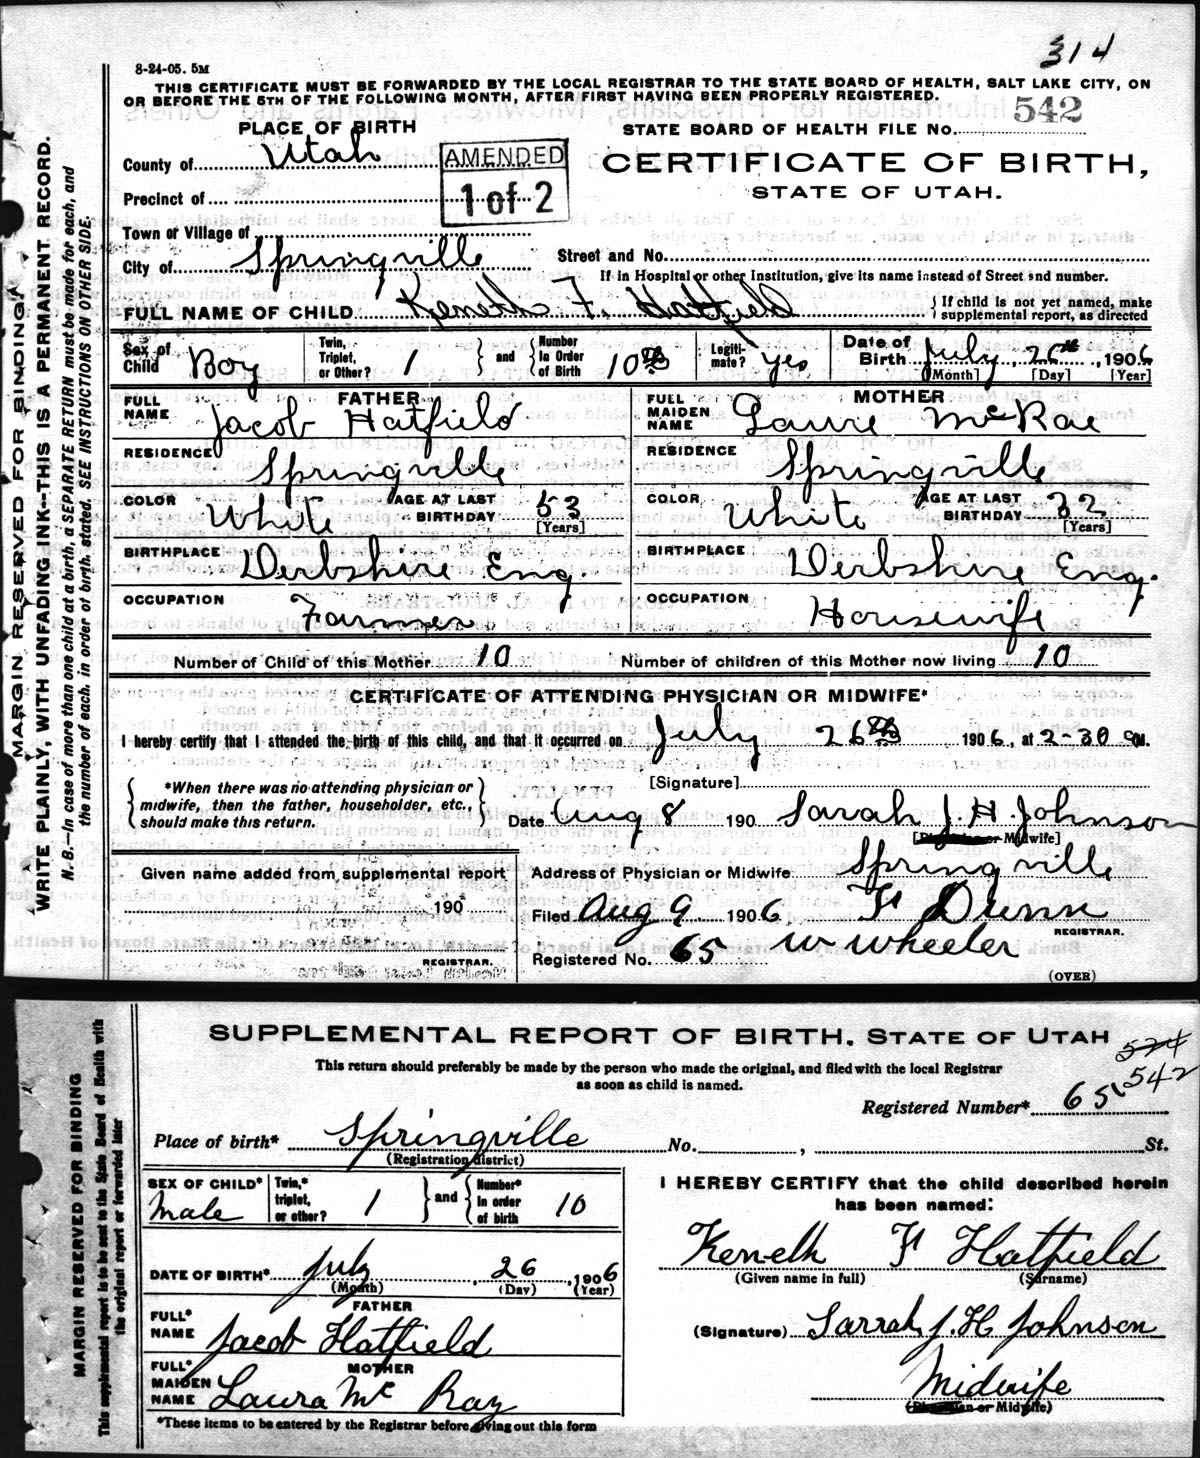 314
8-24-05. 5M
THIS CERTIFICATE MUST BE FORWARDED BY THE LOCAL REGISTRAR TO THE STATE BOARD OF HEALTH, SALT LAKE CITY, ON
OR BEFORE THE 5TH OF THE FOLLOWING MONTH, AFTER FIRST HAVING BEEN PROPERLY REGISTERED.
STATE BOARD OF HEALTH FILE No. 542
PLACE OF BIRTH
CERTIFICATE OF BIRTH,
STATE OF UTAH.
County of Utah
AMENDED
1 of 2
Precinct of
Town or Village of
City of Springville
Street and No.
If in Hospital or other Institution, give its name instead of Street and number.
FULL NAME OF CHILD Keneth F. Hatfield
{ If child is not yet named, make
supplemental report, as directed
Sex of Child Boy
Twin, Triplet, or Other? 1 } and { Number in Order of Birth 10th
Legiti-mate? yes
Date of Birth July 26th, 1906
[Month] [Day] [Year]
FATHER
FULL NAME Jacob Hatfield
MOTHER
FULL MAIDEN NAME Laurie McRae
RESIDENCE Springville
RESIDENCE Springville
COLOR White AGE AT LAST BIRTHDAY 53 [Years]
COLOR White AGE AT LAST BIRTHDAY 32 [Years]
BIRTHPLACE Derbshire Eng.
BIRTHPLACE Derbshire Eng.
OCCUPATION Farmer
OCCUPATION Housewife
Number of Child of this Mother 10 Number of children of this Mother now living 10
CERTIFICATE OF ATTENDING PHYSICIAN OR MIDWIFE*
I hereby certify that I attended the birth of this child, and that it occurred on July 26th 1906, at 2-30 a M.
{ *When there was no attending physician or
midwife, then the father, householder, etc.,
should make this return. }
[Signature]
Date Aug 8 190 Sarah J. H. Johnson
[Physician or Midwife]
Given name added from supplemental report
190
REGISTRAR.
Address of Physician or Midwife Springville
Filed Aug 9 1906 F Dunn
REGISTRAR.
Registered No. 65 W Wheeler
(OVER)
MARGIN RESERVED FOR BINDING.
WRITE PLAINLY, WITH UNFADING INK--THIS IS A PERMANENT RECORD.
N. B.—In case of more than one child at a birth, a SEPARATE RETURN must be made for each, and
the number of each, in order of birth, stated. SEE INSTRUCTIONS ON OTHER SIDE.
SUPPLEMENTAL REPORT OF BIRTH. STATE OF UTAH
524
542
This return should preferably be made by the person who made the original, and filed with the local Registrar
as soon as child is named.
Registered Number* 65
Place of birth* Springville No. , St.
(Registration district)
SEX OF CHILD* Male
Twin,* triplet, or other? 1 } and { Number* in order of birth 10
DATE OF BIRTH* July 26, 1906
(Month) (Day) (Year)
FATHER
FULL* NAME Jacob Hatfield
MOTHER
FULL* MAIDEN NAME Laura Mc Ray
*These items to be entered by the Registrar before giving out this form
I HEREBY CERTIFY that the child described herein
has been named:
Keneth F Hatfield
(Given name in full) (Surname)
(Signature) Sarrah J. H. Johnson
Midwife
(Physician or Midwife)
MARGIN RESERVED FOR BINDING
This supplemental report is to be sent to the State Board of Health with
the original report or forwarded later